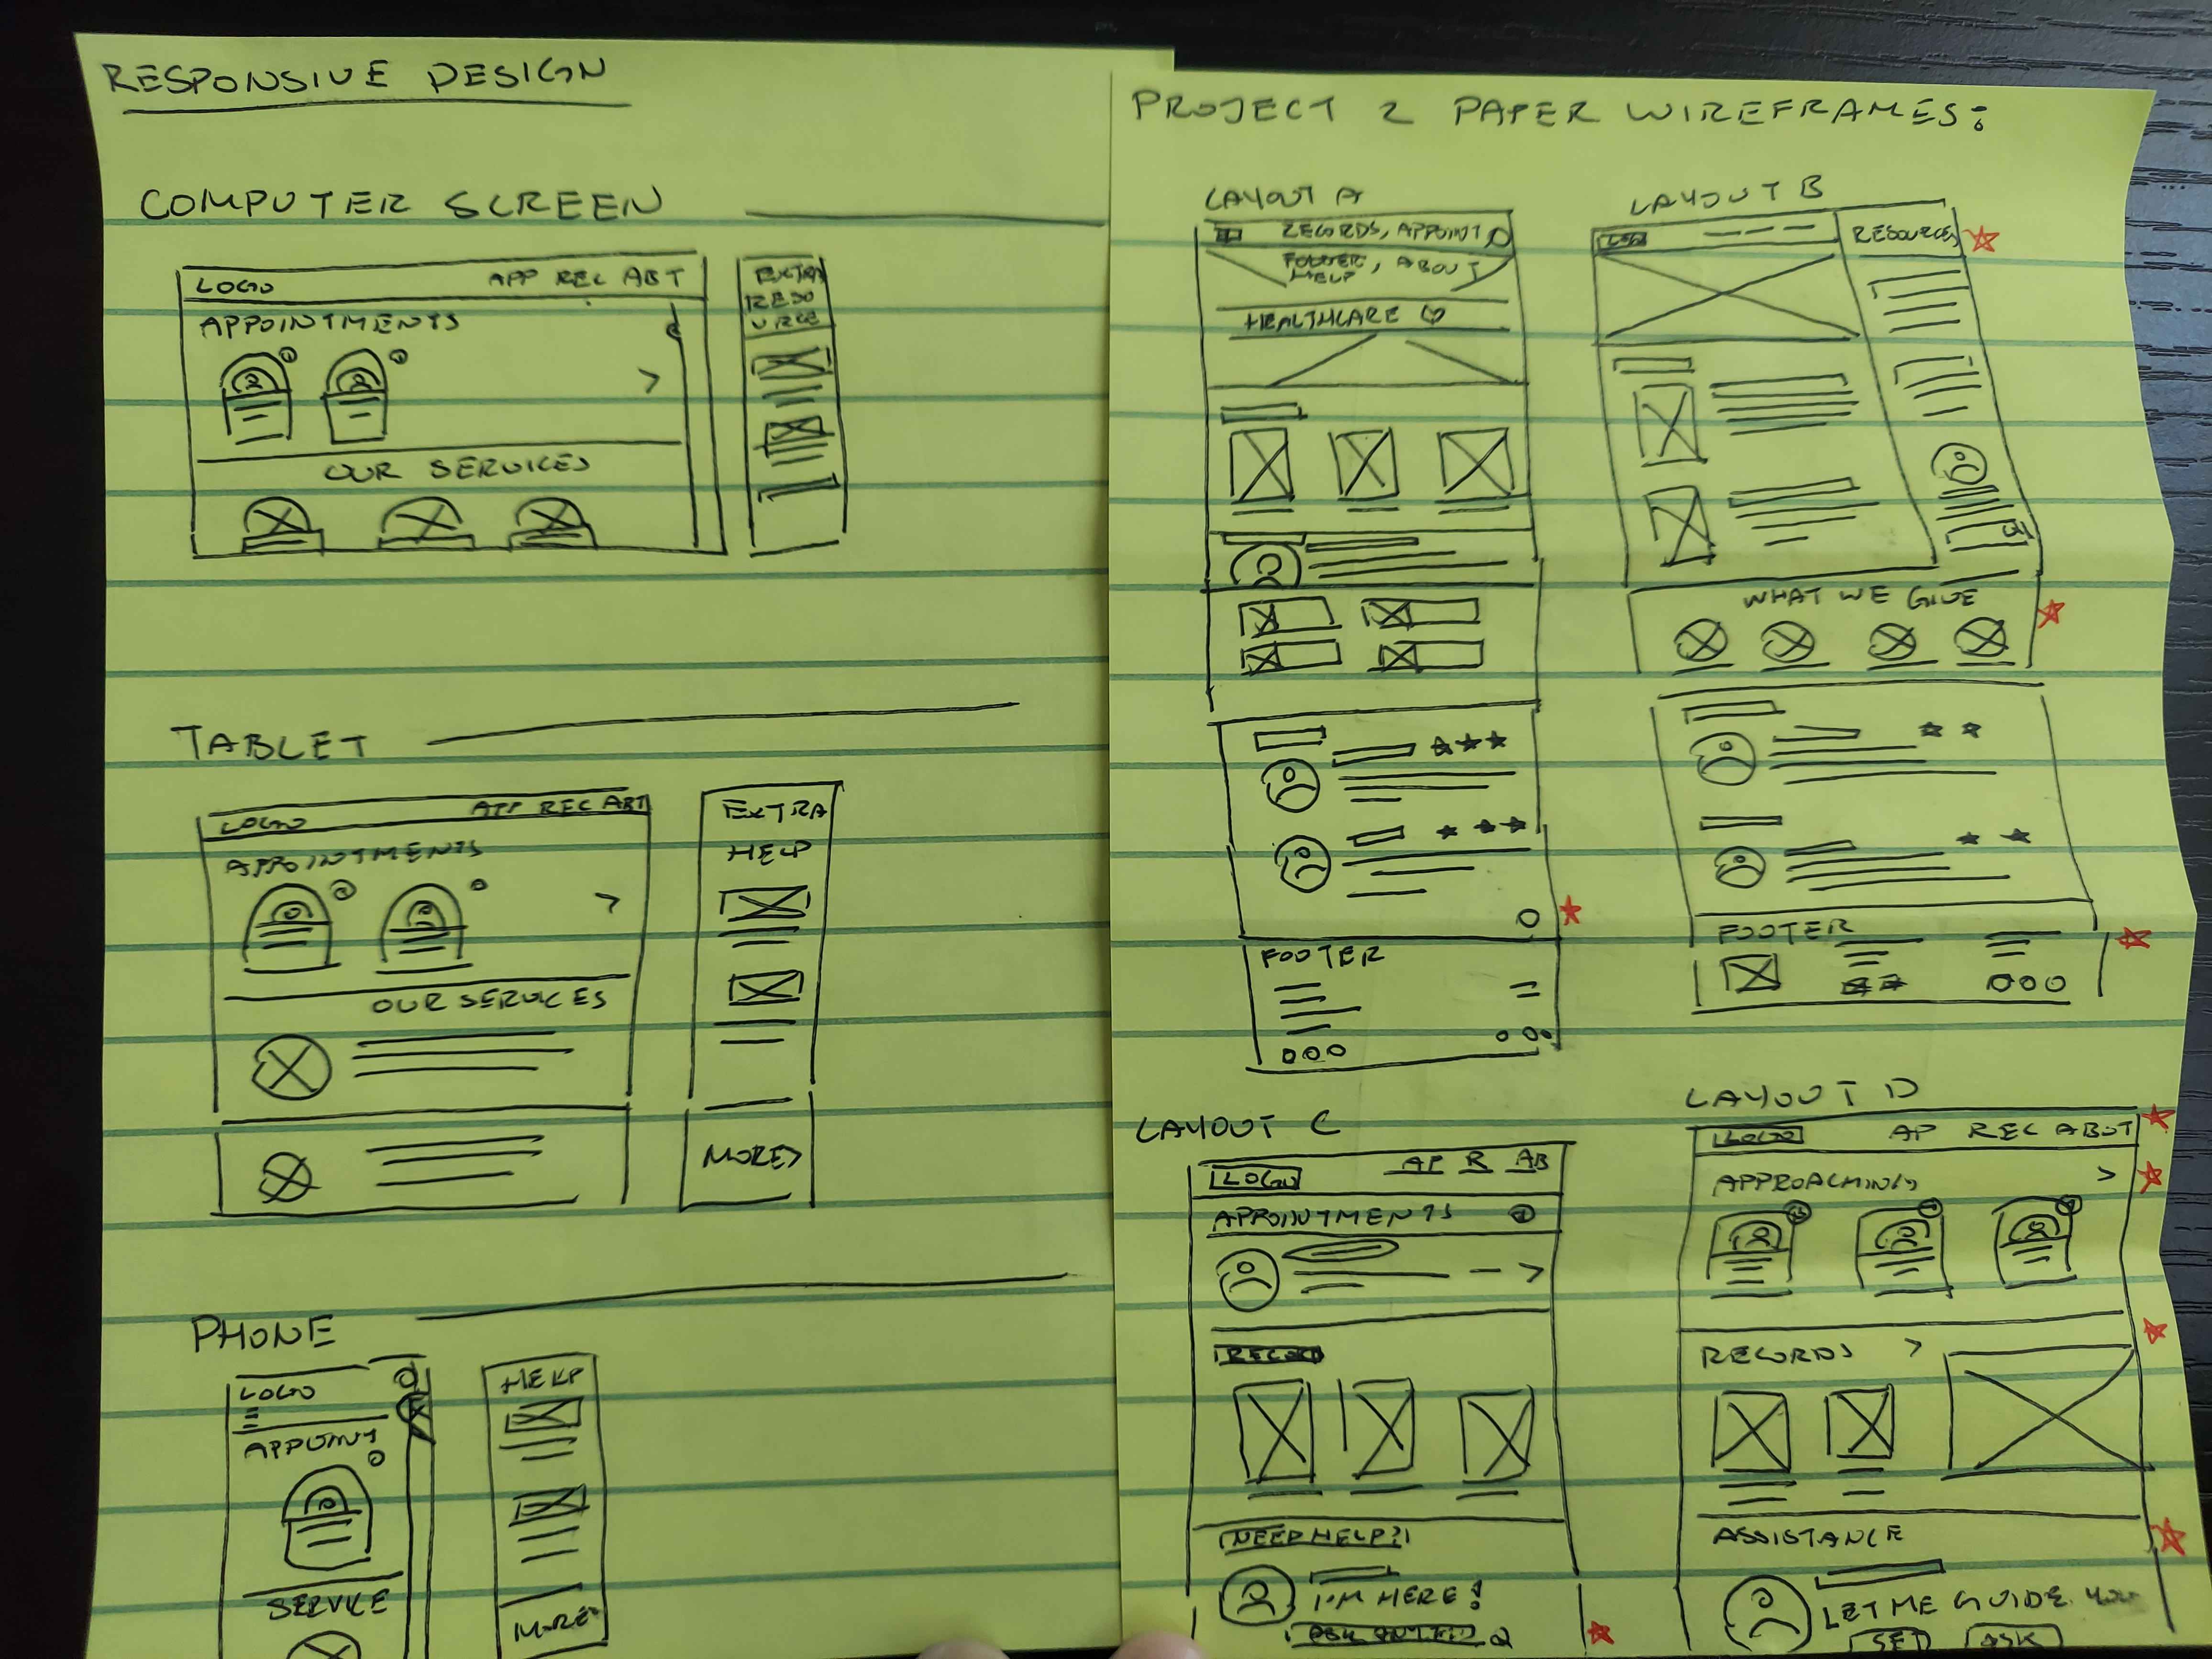 RESPONSIVE DESIGN
COMPUTER SCREEN
LOGO APP REC ABT
APPOINTMENTS
OUR SERVICES
EXTRA
RESO
URCE
TABLET
LOGO APP REC ABT
APPOINTMENTS
OUR SERVICES
EXTRA
HELP
MORE>
PHONE
LOGO
APPOINT
SERVICE
HELP
MORE
PROJECT 2 PAPER WIREFRAMES:
LAYOUT A
RECORDS, APPOINT
FOOTER, ABOUT
HELP
HEALTHCARE
FOOTER
LAYOUT B
LOGO
RESOURCES
WHAT WE GIVE
FOOTER
LAYOUT C
LOGO AP R AB
APPOINTMENTS
RECORD
NEED HELP?
I'M HERE!
LAYOUT D
LOGO AP REC ABOT
APPROACHING >
RECORDS >
ASSISTANCE
LET ME GUIDE YOU
SET ASK